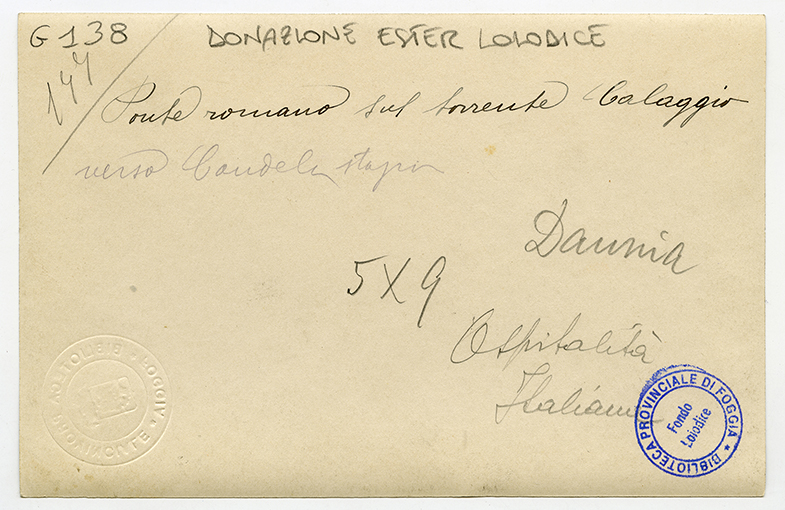 G 138
DONAZIONE ESTER LOIODICE
144
Ponte romano sul torrente Calaggio
verso Candela
Daunia
5 X 9
Ospitalità
Italiana
BIBLIOTECA PROVINCIALE DI FOGGIA *
Fondo
Loiodice